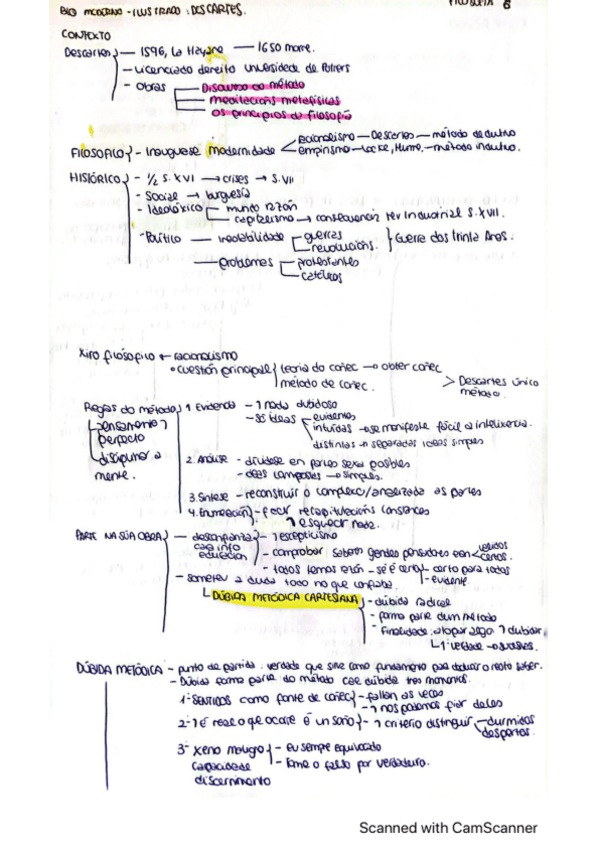 BLO MODERNO - ILUSTRADO : DESCARTES. FILOSOFIA 6
CONTEXTO
Descartes — 1596, La Hayane — 1650 morre.
- Licenciado dereito universidade de Poitiers
- Obras Discurso do método
meditacións metafísicas
os principios da filosofía
FILOSOFICO - Inaugurase modernidade racionalismo — Descartes — método dedutivo
empirismo — Locke, Hume — método indutivo.
HISTÓRICO - 1/2 S. XVI → crises → S. VII
- Social → burguesía
- Ideolóxico mundo razón
capitalismo → consecuencia rev industrial S. XVII.
- Político — inestabilidade guerras
revolucións. Guerra dos Trinta Anos.
problemas protestantes
católicos
Xiro filosófico ← racionalismo
• cuestión principal teoría do coñec → obter coñec
método de coñec. > Descartes único
método.
Regras do método 1. Evidencia - 1 nada dubidoso
pensamento 1 - Só ideas evidentes
perfecto intuídas → se manifesta fácil a intelixencia.
disciplinar a distintas → separadas ideas simples
mente. 2. Análise - divídese en partes sexa posibles
- ideas compostas → simples.
3. Síntese - reconstruír o complexo/analizada as partes
4. Enumeración - facer recapitulacións constantes
1 esquecer nada.
PARTE NA SÚA OBRA — desconfianza - 1 escepticismo
coa info - comprobar saberes grandes pensadores eran válidos
educación certos.
- todos temos razón - se é certo, certo para todos
- evidente
- someter a duda todo no que confiaba.
DÚBIDA METÓDICA CARTESIANA - dúbida radical
- forma parte dun método
- Finalidade: atopar algo 1 dubidar
1ª verdade →
DÚBIDA METÓDICA - punto de partida : verdade que sirve como fundamento para deducir o resto saber.
- Dúbida forma parte do método cae dúbida tres momentos.
1º SENTIDOS como fonte de coñec - fallan ás veces
- 1 nos podemos fiar deles
2º 1 é real o que ocorre é un soño - 1 criterio distinguir durmidos
despertos.
3º Xenio maligno - eu sempre equivocado
capacidade - tome o falso por verdadeiro.
discernimento
Scanned with CamScanner